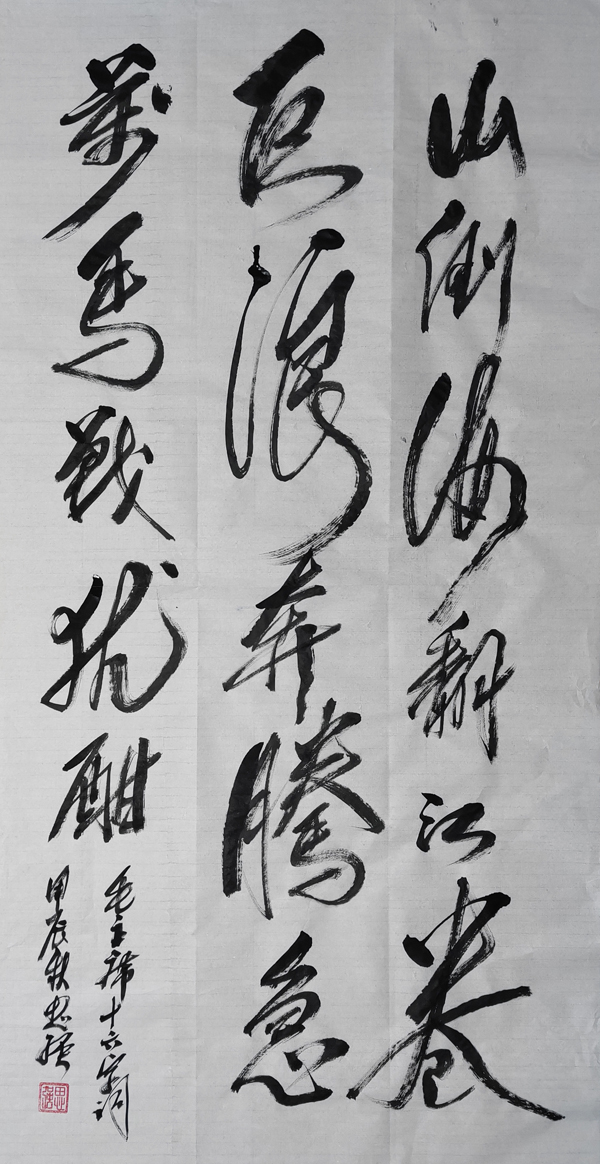 山倒海翻江卷
巨浪奔腾急
萬马战犹酣
毛主席十六字词
甲辰秋思强